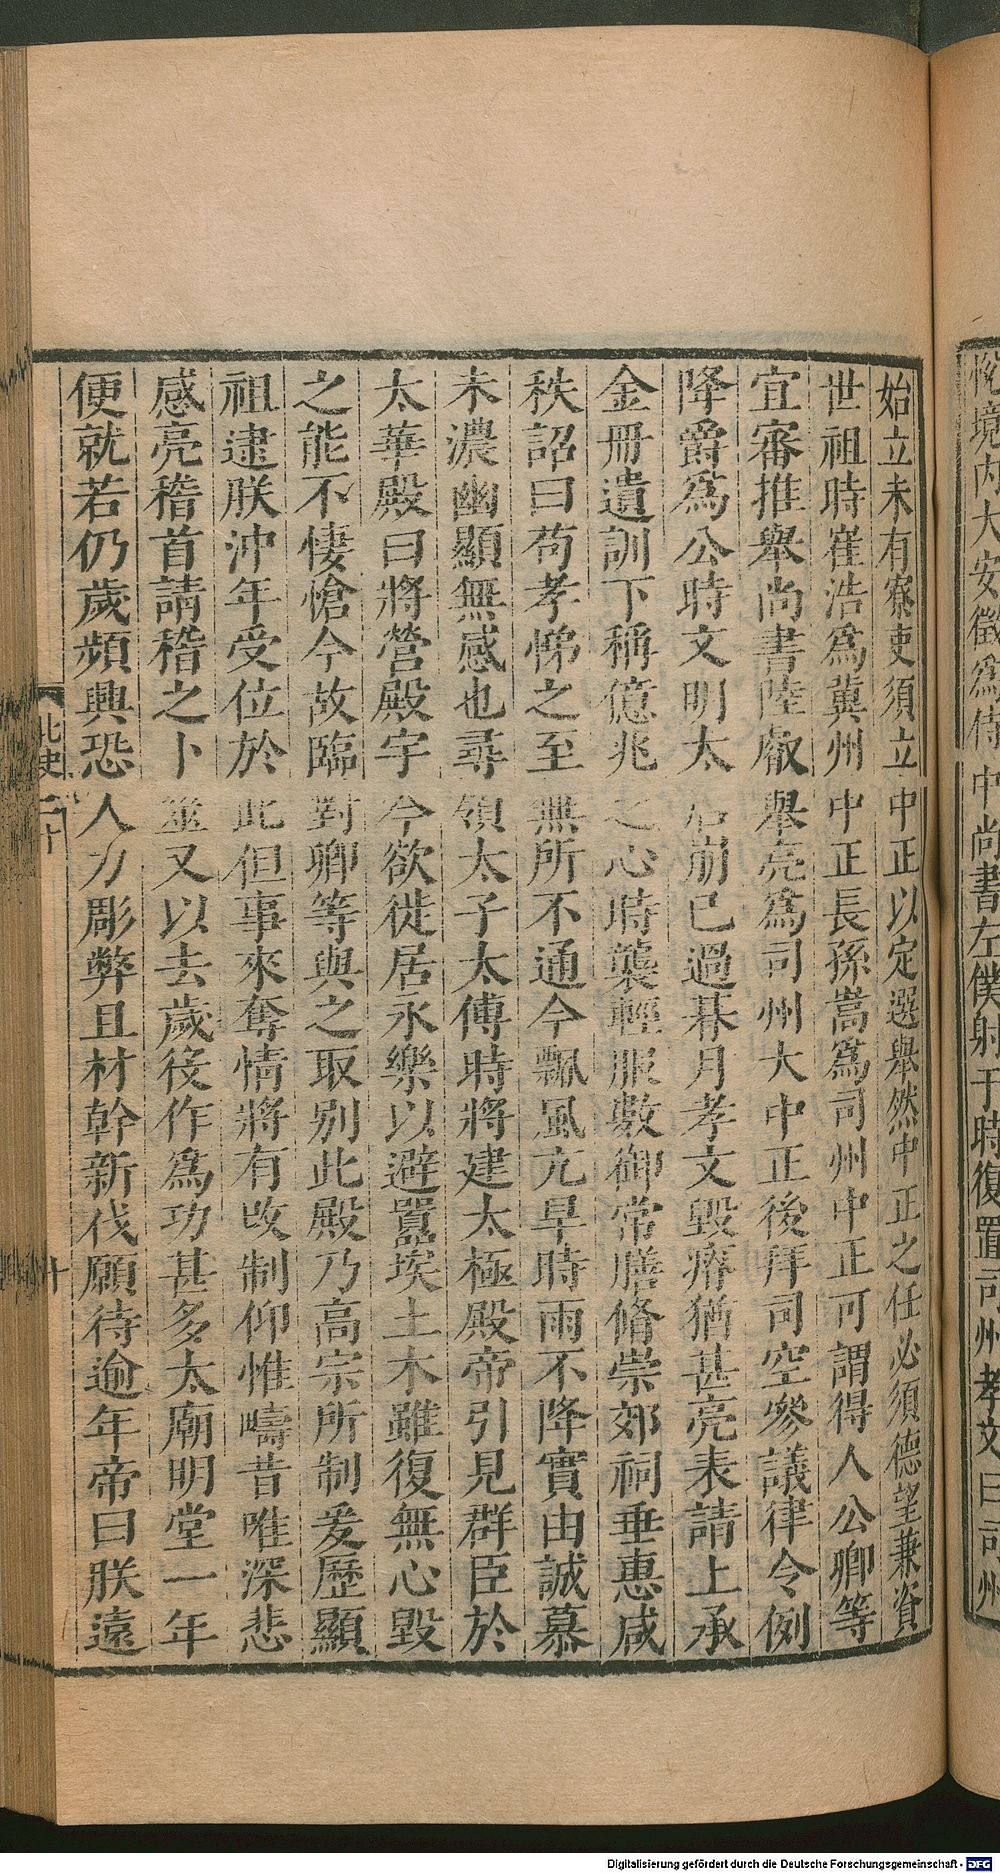 悅境內大安徵爲侍中尚書左僕射于時復置司州孝文曰司州
始立未有寮吏須立中正以定選舉然中正之任必須德望兼資
世祖時崔浩爲冀州中正長孫嵩爲司州中正可謂得人公卿等
宜審推舉尚書陸叡舉亮爲司州大中正後拜司空參議律令例
降爵爲公時文明太后崩已過朞月孝文毀瘠猶甚亮表請上承
金冊遺訓下稱億兆之心時襲輕服數御常膳脩崇郊祠垂惠咸
秩詔曰苟孝悌之至無所不通今飄風亢旱時雨不降實由誠慕
未濃幽顯無感也尋領太子太傅時將建太極殿帝引見群臣於
太華殿曰將營殿宇今欲徙居永樂以避囂埃土木雖復無心毀
之能不悽愴今故臨對卿等與之取別此殿乃高宗所制爰歷顯
祖逮朕沖年受位於此但事來奪情將有改制仰惟疇昔唯深悲
感亮稽首請稽之卜筮又以去歲役作爲功甚多太廟明堂一年
便就若仍歲頻興恐人力彫弊且材幹新伐願待逾年帝曰朕遠
北史二十
十
Digitalisierung gefördert durch die Deutsche Forschungsgemeinschaft - DFG